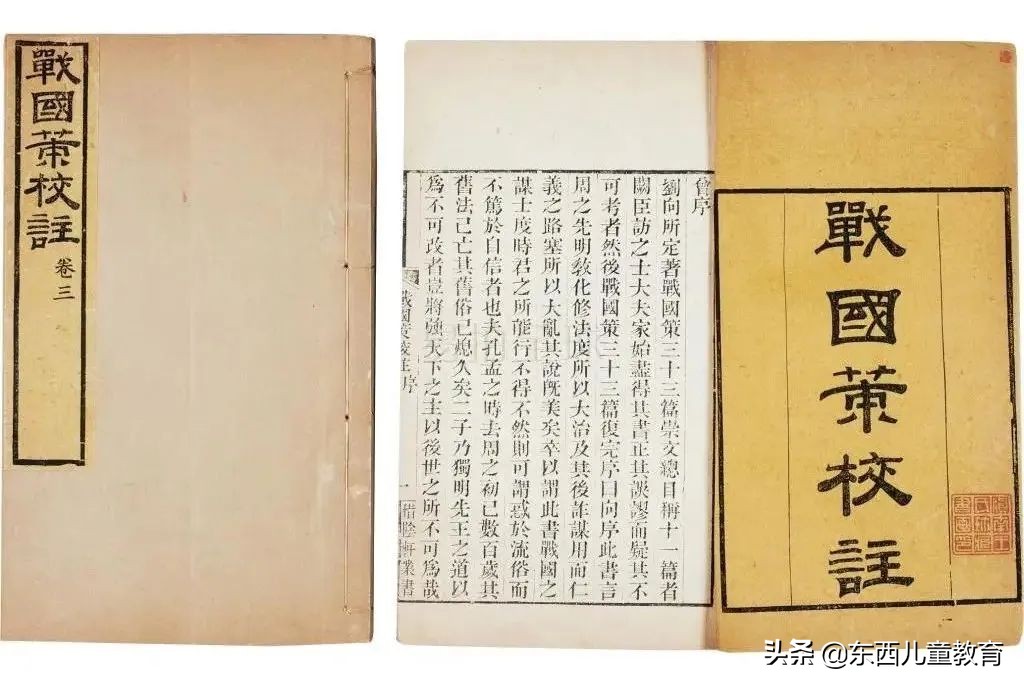 戰國策校註
卷三
戰國策校註
曾序
劉向所定著戰國策三十三篇崇文總目稱十一篇者
闕臣訪之士大夫家始盡得其書正其誤謬而疑其不
可考者然後戰國策三十三篇復完序曰向序此書言
周之先明敎化修法度所以大治及其後詐謀用而仁
義之路塞所以大亂其說旣美矣卒以謂此書戰國之
謀士度時君之所能行不得不然則可謂惑於流俗而
不篤於自信者也夫孔孟之時去周之初已數百歲其
舊法已亡其舊俗已熄久矣二子乃獨明先王之道以
爲不可改者豈將強天下之主以後世之所不可爲哉
戰國策校註序
一
惜陰軒叢書
头条 @东西儿童教育